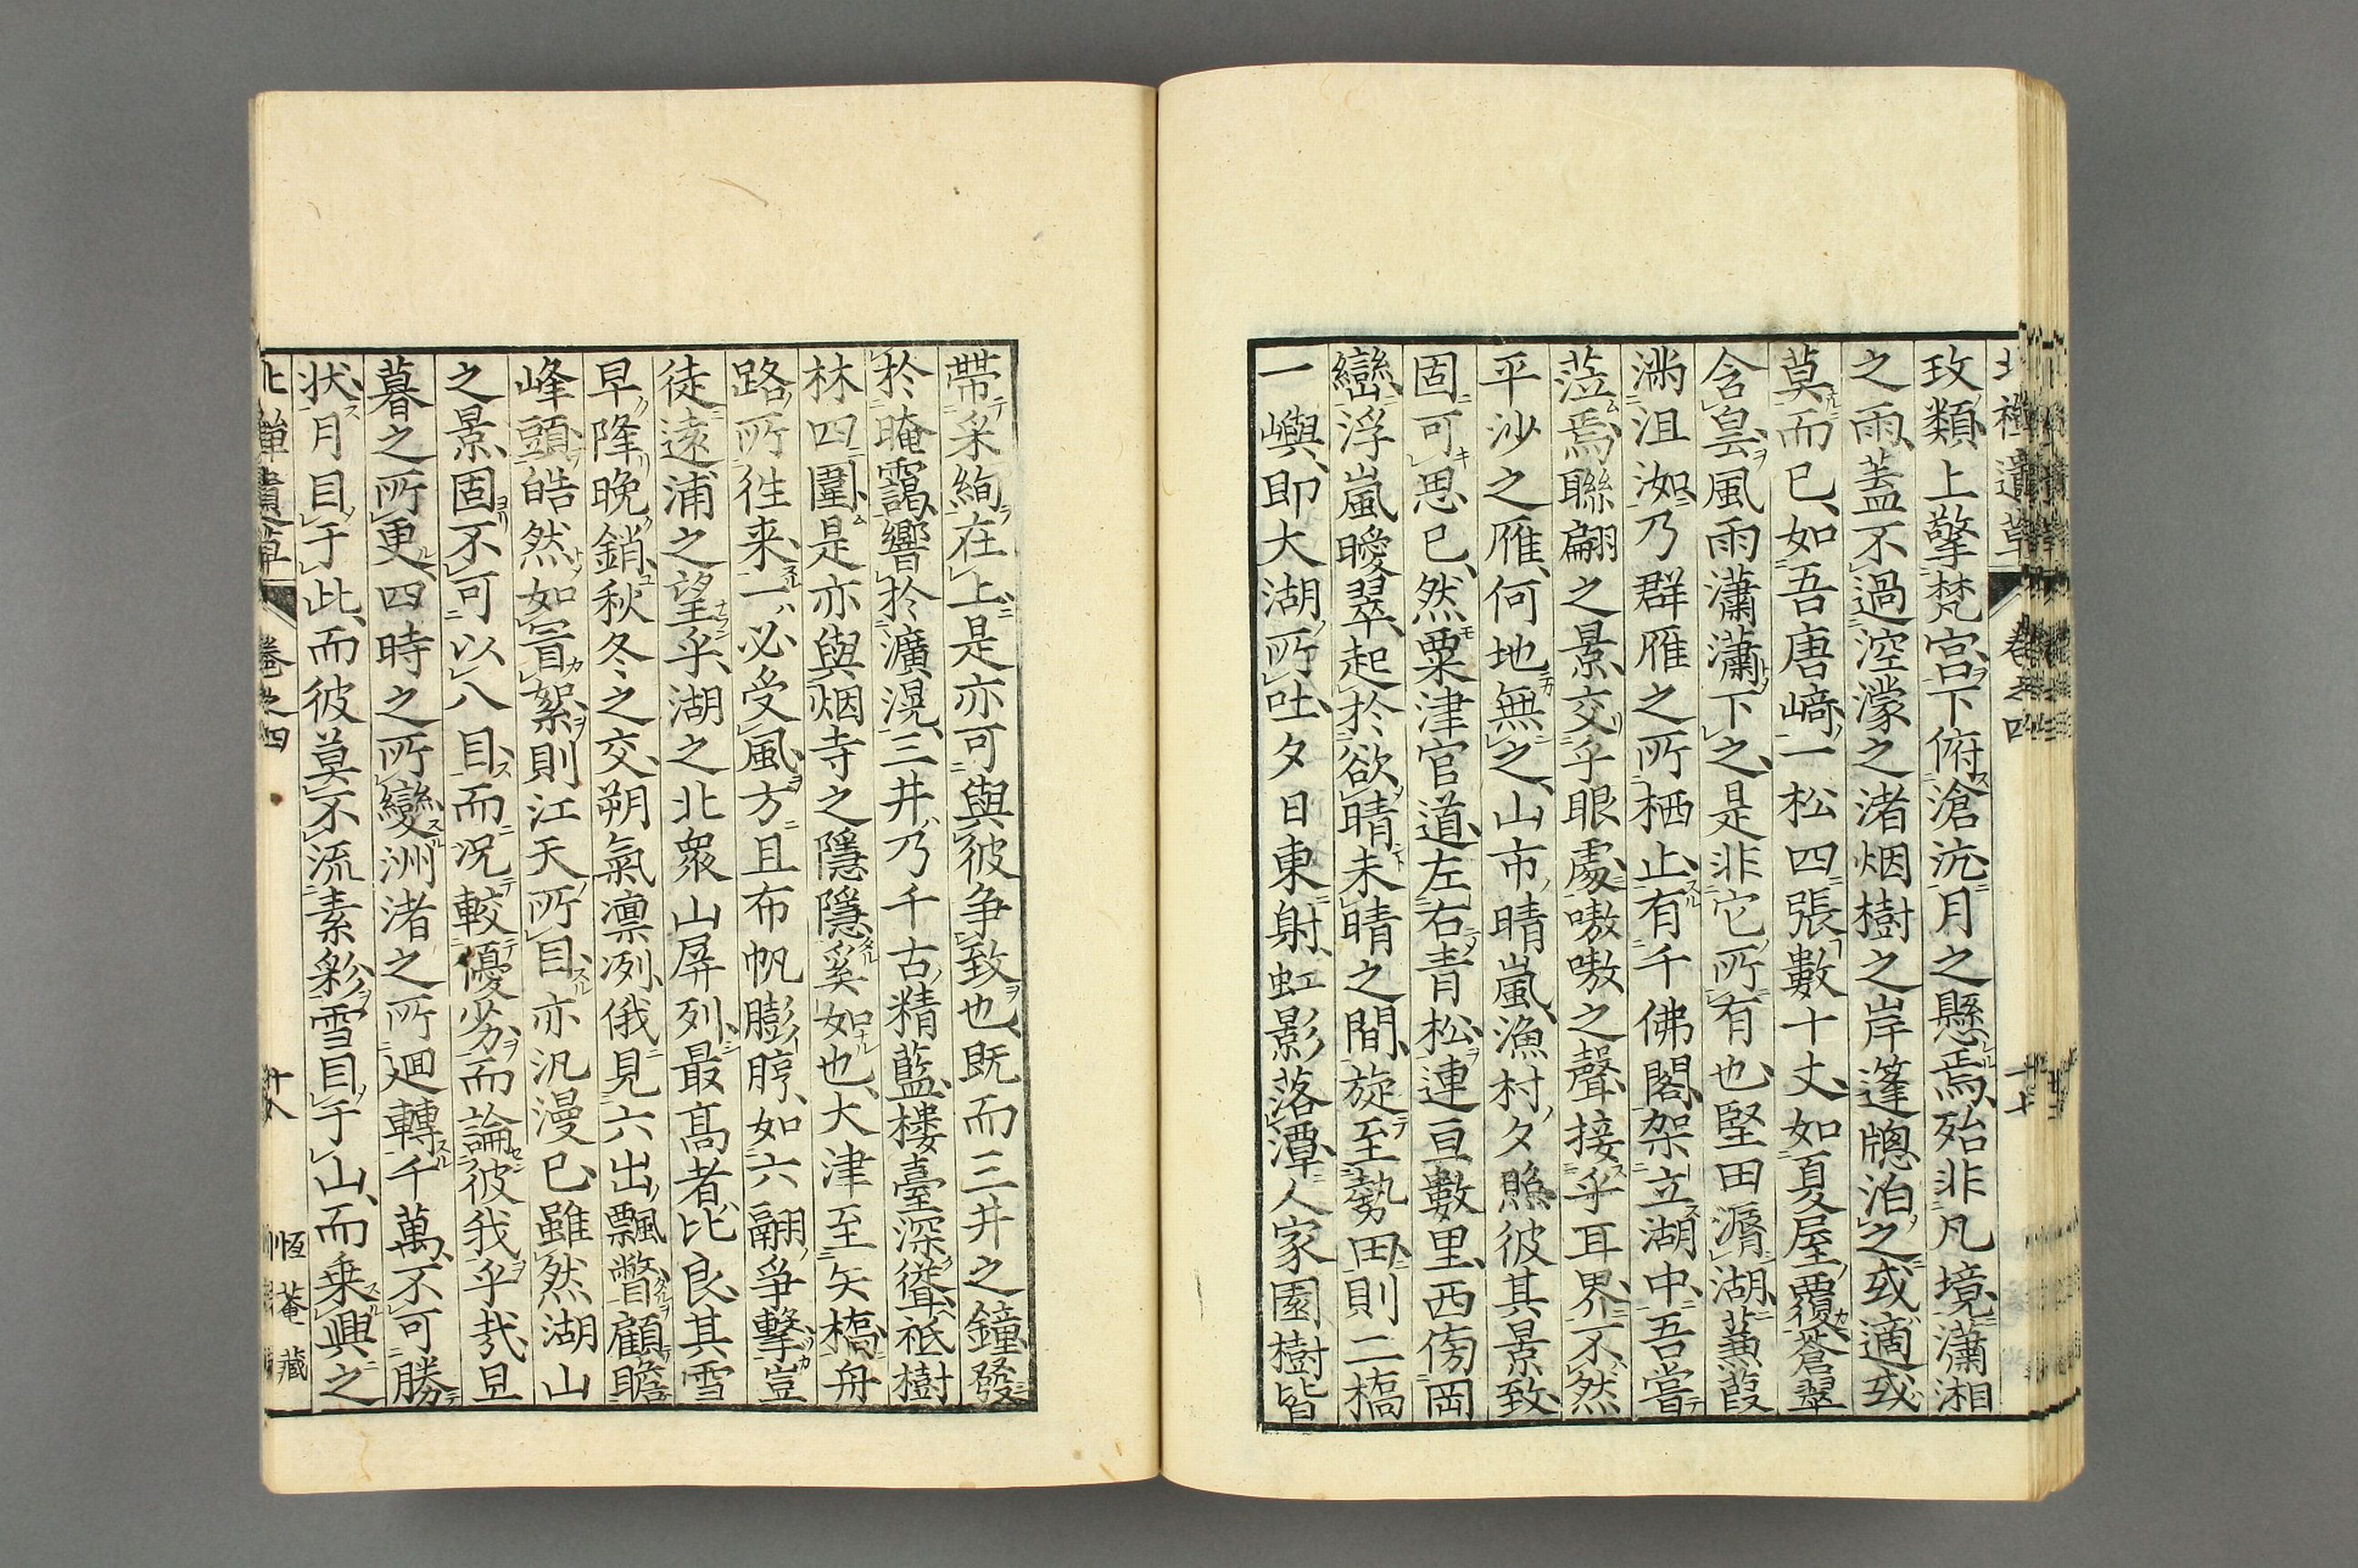 玫類上擎梵宮下俯滄沆月之懸焉殆非凡境瀟湘
之雨蓋不過涳濛之渚烟樹之岸篷牕泊之或適或
莫而已如吾唐﨑一松四張數十丈如夏屋覆蒼翠
含皇風雨瀟瀟下之是非它所有也堅田漘湖蒹葭
沮洳乃群雁之所栖止有千佛閣架立湖中吾嘗
蒞焉聯翩之景交乎眼處嗷嗷之聲接乎耳界不然
平沙之雁何地無之山市晴嵐漁村夕照彼其景致
固可思已然粟津官道左右青松連亘數里西傍岡
巒浮嵐曖翠起於欲晴未晴之間旋至勢田則二橋
一嶼即大湖所吐夕日東射虹影落潭人家園樹皆
帶采絢在上是亦可與彼争致也既而三井之鐘發
於晻靄響於瀇滉三井乃千古精藍樓臺深邃祗樹
林四圍是亦與烟寺之隱隱奚如也大津至矢橋舟
路所徃来一必受風方且布帆膨脝如六翮爭擊豈
徒遠浦之望乎湖之北衆山屏列最髙者比良其雪
早降晚銷秋冬之交朔氣凛冽俄見六出飄瞥顧瞻
峰頭皓然如冒絮則江天所目亦汎漫已雖然湖山
之景固不可以八目而况較優劣而論彼我乎哉且
暮之所更四時之所變洲渚之所廻轉千萬不可勝
状月目于此而彼莫不流素彩雪目于山而乗興之
北禅遺草 卷之四 十八 恒菴藏